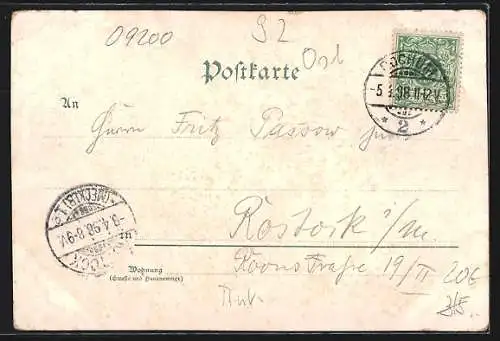 09200
Postkarte
-5.4.98.11-12V.
* 2 *
An
Herrn Fritz Passow
(MECKLB) 1.
-6.4.98.8-9V.
Rostock i/M.
Wohnung
(Straße und Hausnummer)
Roonstraße 19/II
20€